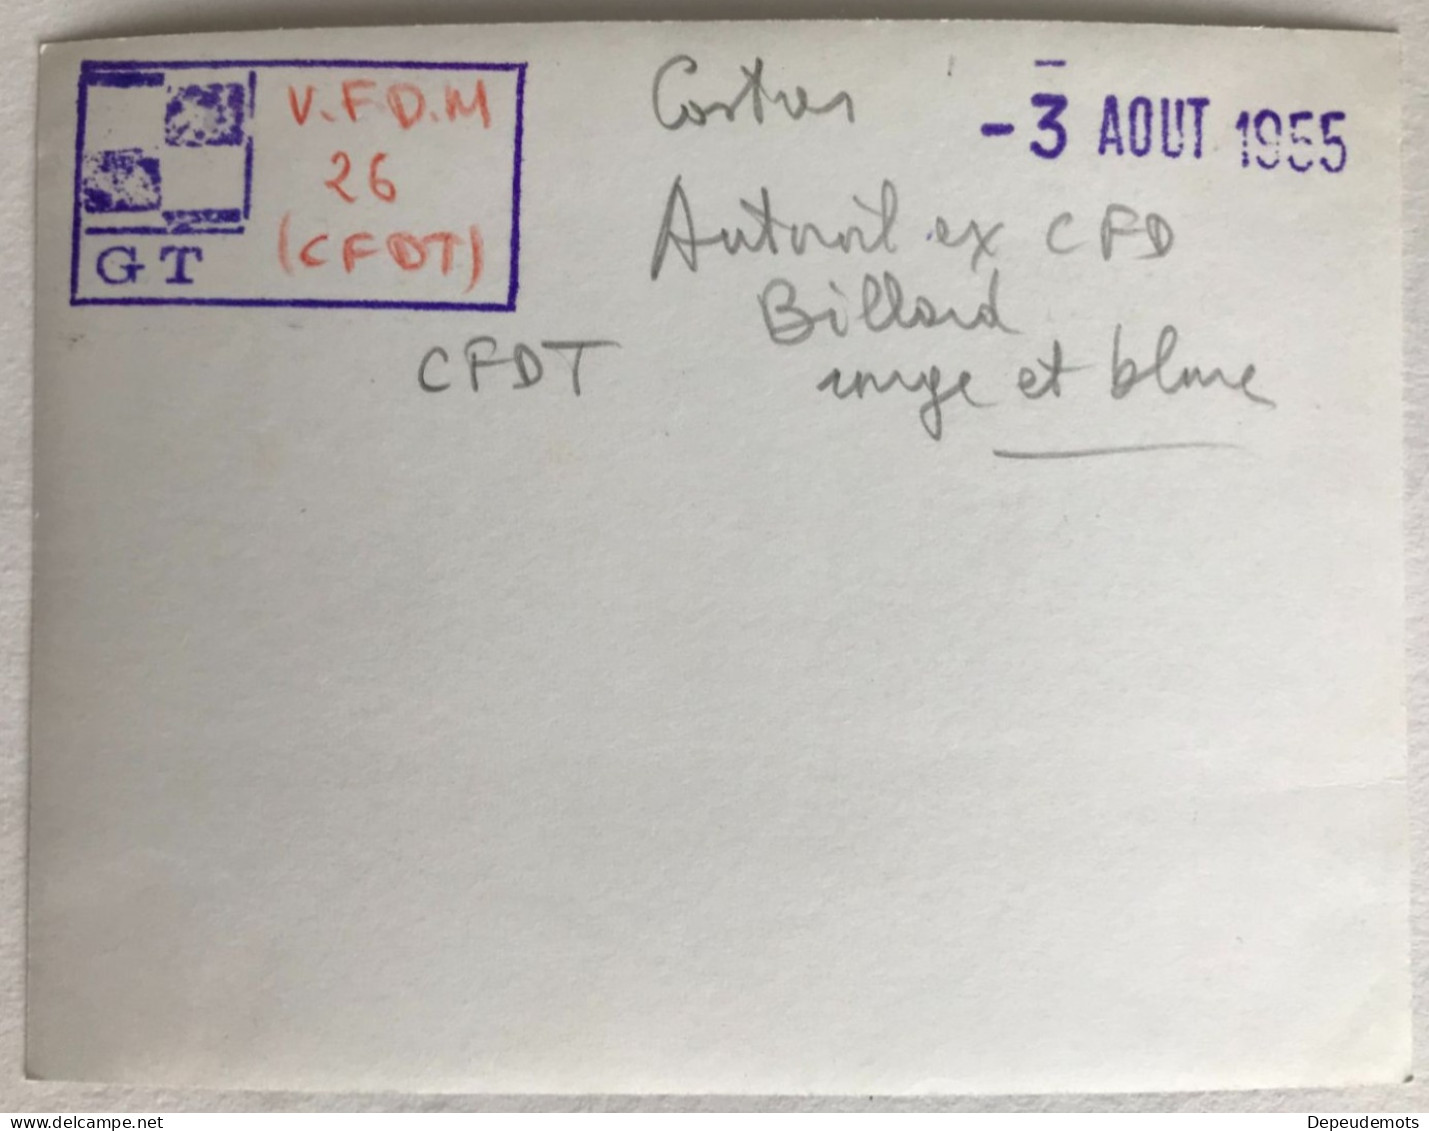 V.F.D.M
26
(CFDT)
GT
Castres
- 3 AOUT 1955
Autorail ex CFD
Billard
CFDT
rouge et blanc
www.delcampe.net
Depeudemots